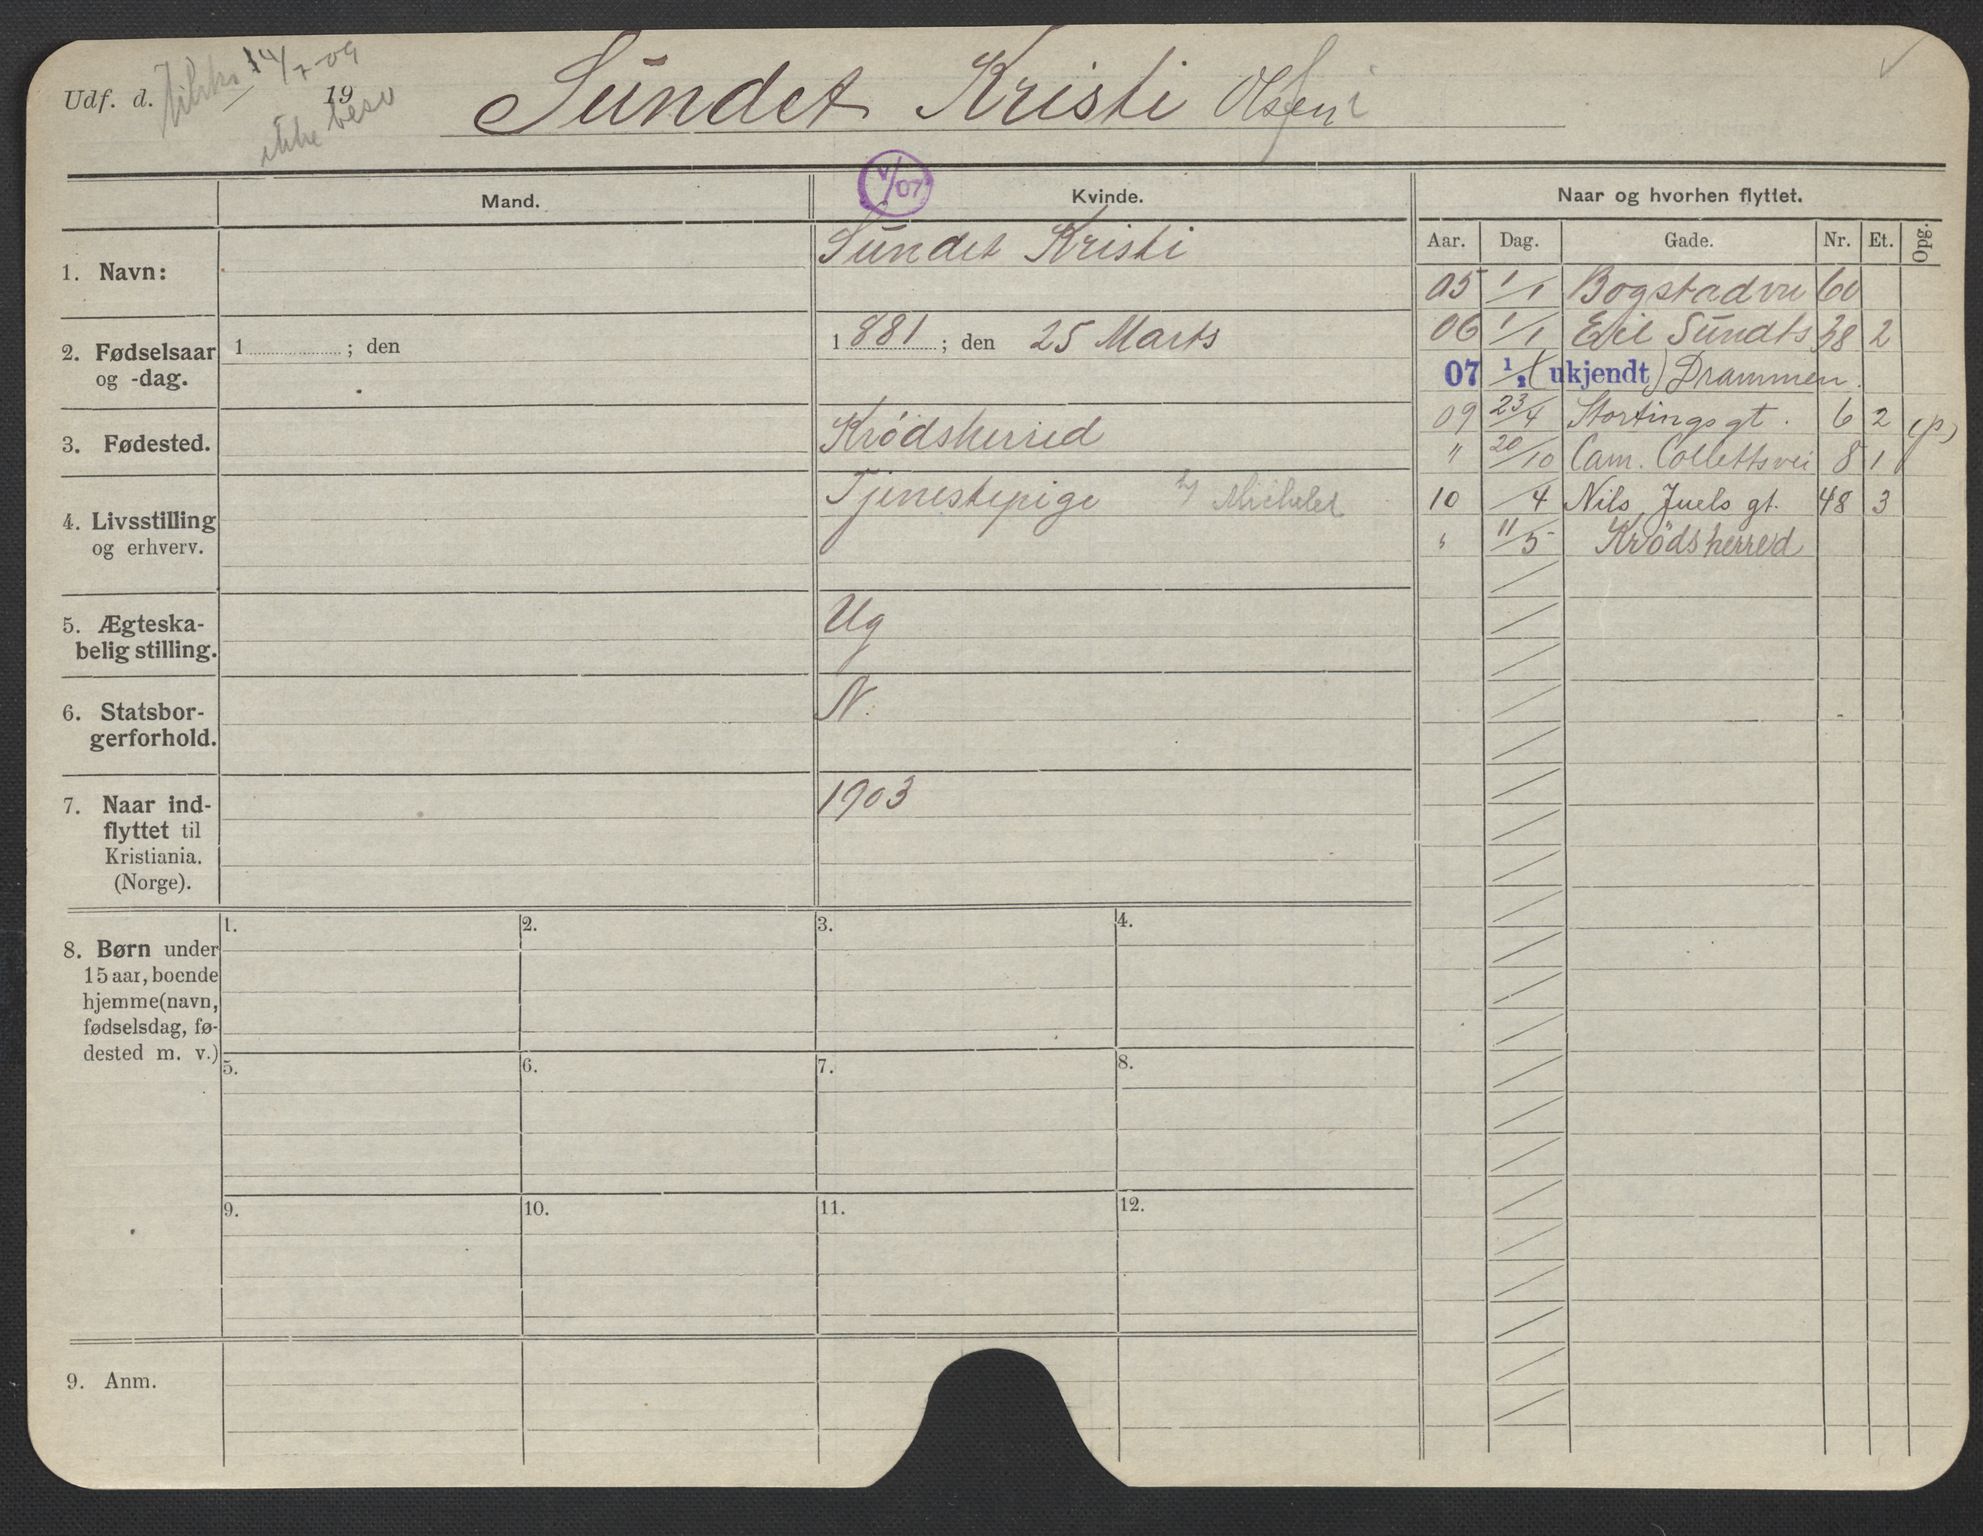 Udf. d. 14/7-09 19
ikke besv
Sundet Kristi Olsen
Mand.
V/07
Kvinde.
Naar og hvorhen flyttet.
Aar. Dag. Gade. Nr. Et. Opg.
1. Navn:
Sundet Kristi
2. Fødselsaar
og -dag.
1 ; den
1881 ; den 25 Marts
3. Fødested.
Krødsherred
4. Livsstilling
og erhverv.
Tjenestepige h/ Michelet
5. Ægteska-
belig stilling.
Ug
6. Statsbor-
gerforhold.
N.
7. Naar ind-
flyttet til
Kristiania.
(Norge).
1903
05 1/1 Bogstadvei 60
06 1/1 Eil Sundts 38 2
07 1/2 (ukjendt) Drammen.
09 23/4 Stortingsgt. 6 2 (p)
" 20/10 Cam. Collettsvei 8 1
10 /4 Nils Juels gt. 48 3
" 11/5 Krødsherred
8. Børn under
15 aar, boende
hjemme (navn,
fødselsdag, fø-
dested m. v.)
1. 2. 3. 4.
5. 6. 7. 8.
9. 10. 11. 12.
9. Anm.